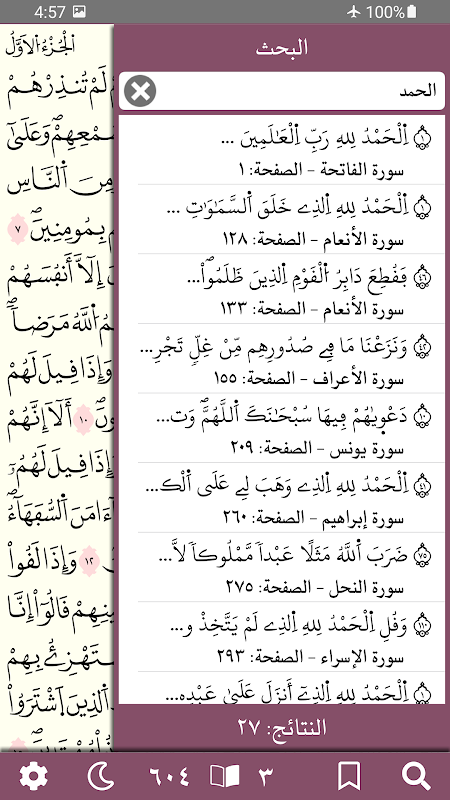 4:57
100%
البحث
الحمد
١ اِ۬لْحَمْدُ لِلهِ رَبِّ اِ۬لْعَٰلَمِينَ ...
سورة الفاتحة - الصفحة: ١
١ اِ۬لْحَمْدُ لِلهِ اِ۬لذِے خَلَقَ اَ۬لسَّمَٰوَٰتِ ...
سورة الأنعام - الصفحة: ١٢٨
٤٦ فَقُطِعَ دَابِرُ اُ۬لْقَوْمِ اِ۬لذِينَ ظَلَمُواْ...
سورة الأنعام - الصفحة: ١٣٣
٤٢ وَنَزَعْنَا مَا فِے صُدُورِهِم مِّنْ غِلّٖ تَجْرِ...
سورة الأعراف - الصفحة: ١٥٥
١٠ دَعْوٜيٰهُمْ فِيهَا سُبْحَٰنَكَ اَ۬للَّهُمَّ وَت...
سورة يونس - الصفحة: ٢٠٩
٤١ اِ۬لْحَمْدُ لِلهِ اِ۬لذِے وَهَبَ لِے عَلَي اَ۬لْك...
سورة إبراهيم - الصفحة: ٢٦٠
٧٥ ضَرَبَ اَ۬للَّهُ مَثَلًا عَبْداٗ مَّمْلُوكاٗ لَّا...
سورة النحل - الصفحة: ٢٧٥
١١٠ وَقُلِ اِ۬لْحَمْدُ لِلهِ اِ۬لذِے لَمْ يَتَّخِذْ و...
سورة الإسراء - الصفحة: ٢٩٣
١ اِ۬لْحَمْدُ لِلهِ اِ۬لذِےٓ أَنزَلَ عَلَيٰ عَبْدِهِ...
النتائج: ٢٧
اَ۬لْجُزْءُ اُ۬لْأَوَّلُ
لَمْ تُنذِرْهُمْ
وَعَلَيٰٓ
مِنَ اَ۬لنَّاسِ
بِمُومِنِينَ ٧
إِلَّآ أَنفُسَهُمْ
اُ۬للَّهُ مَرَضاٗ
وَإِذَا قِيلَ لَهُمْ
١٠ أَلَآ إِنَّهُمْ
وَإِذَا قِيلَ لَهُمُۥٓ
ءَامَنَ اَ۬لسُّفَهَآءُ
١٢ وَإِذَا لَقُواْ
قَالُوٓاْ إِنَّا
بِهِمْ
اَ۬لذِينَ اَ۪شْتَرَوُاْ
٣
٦٠٤